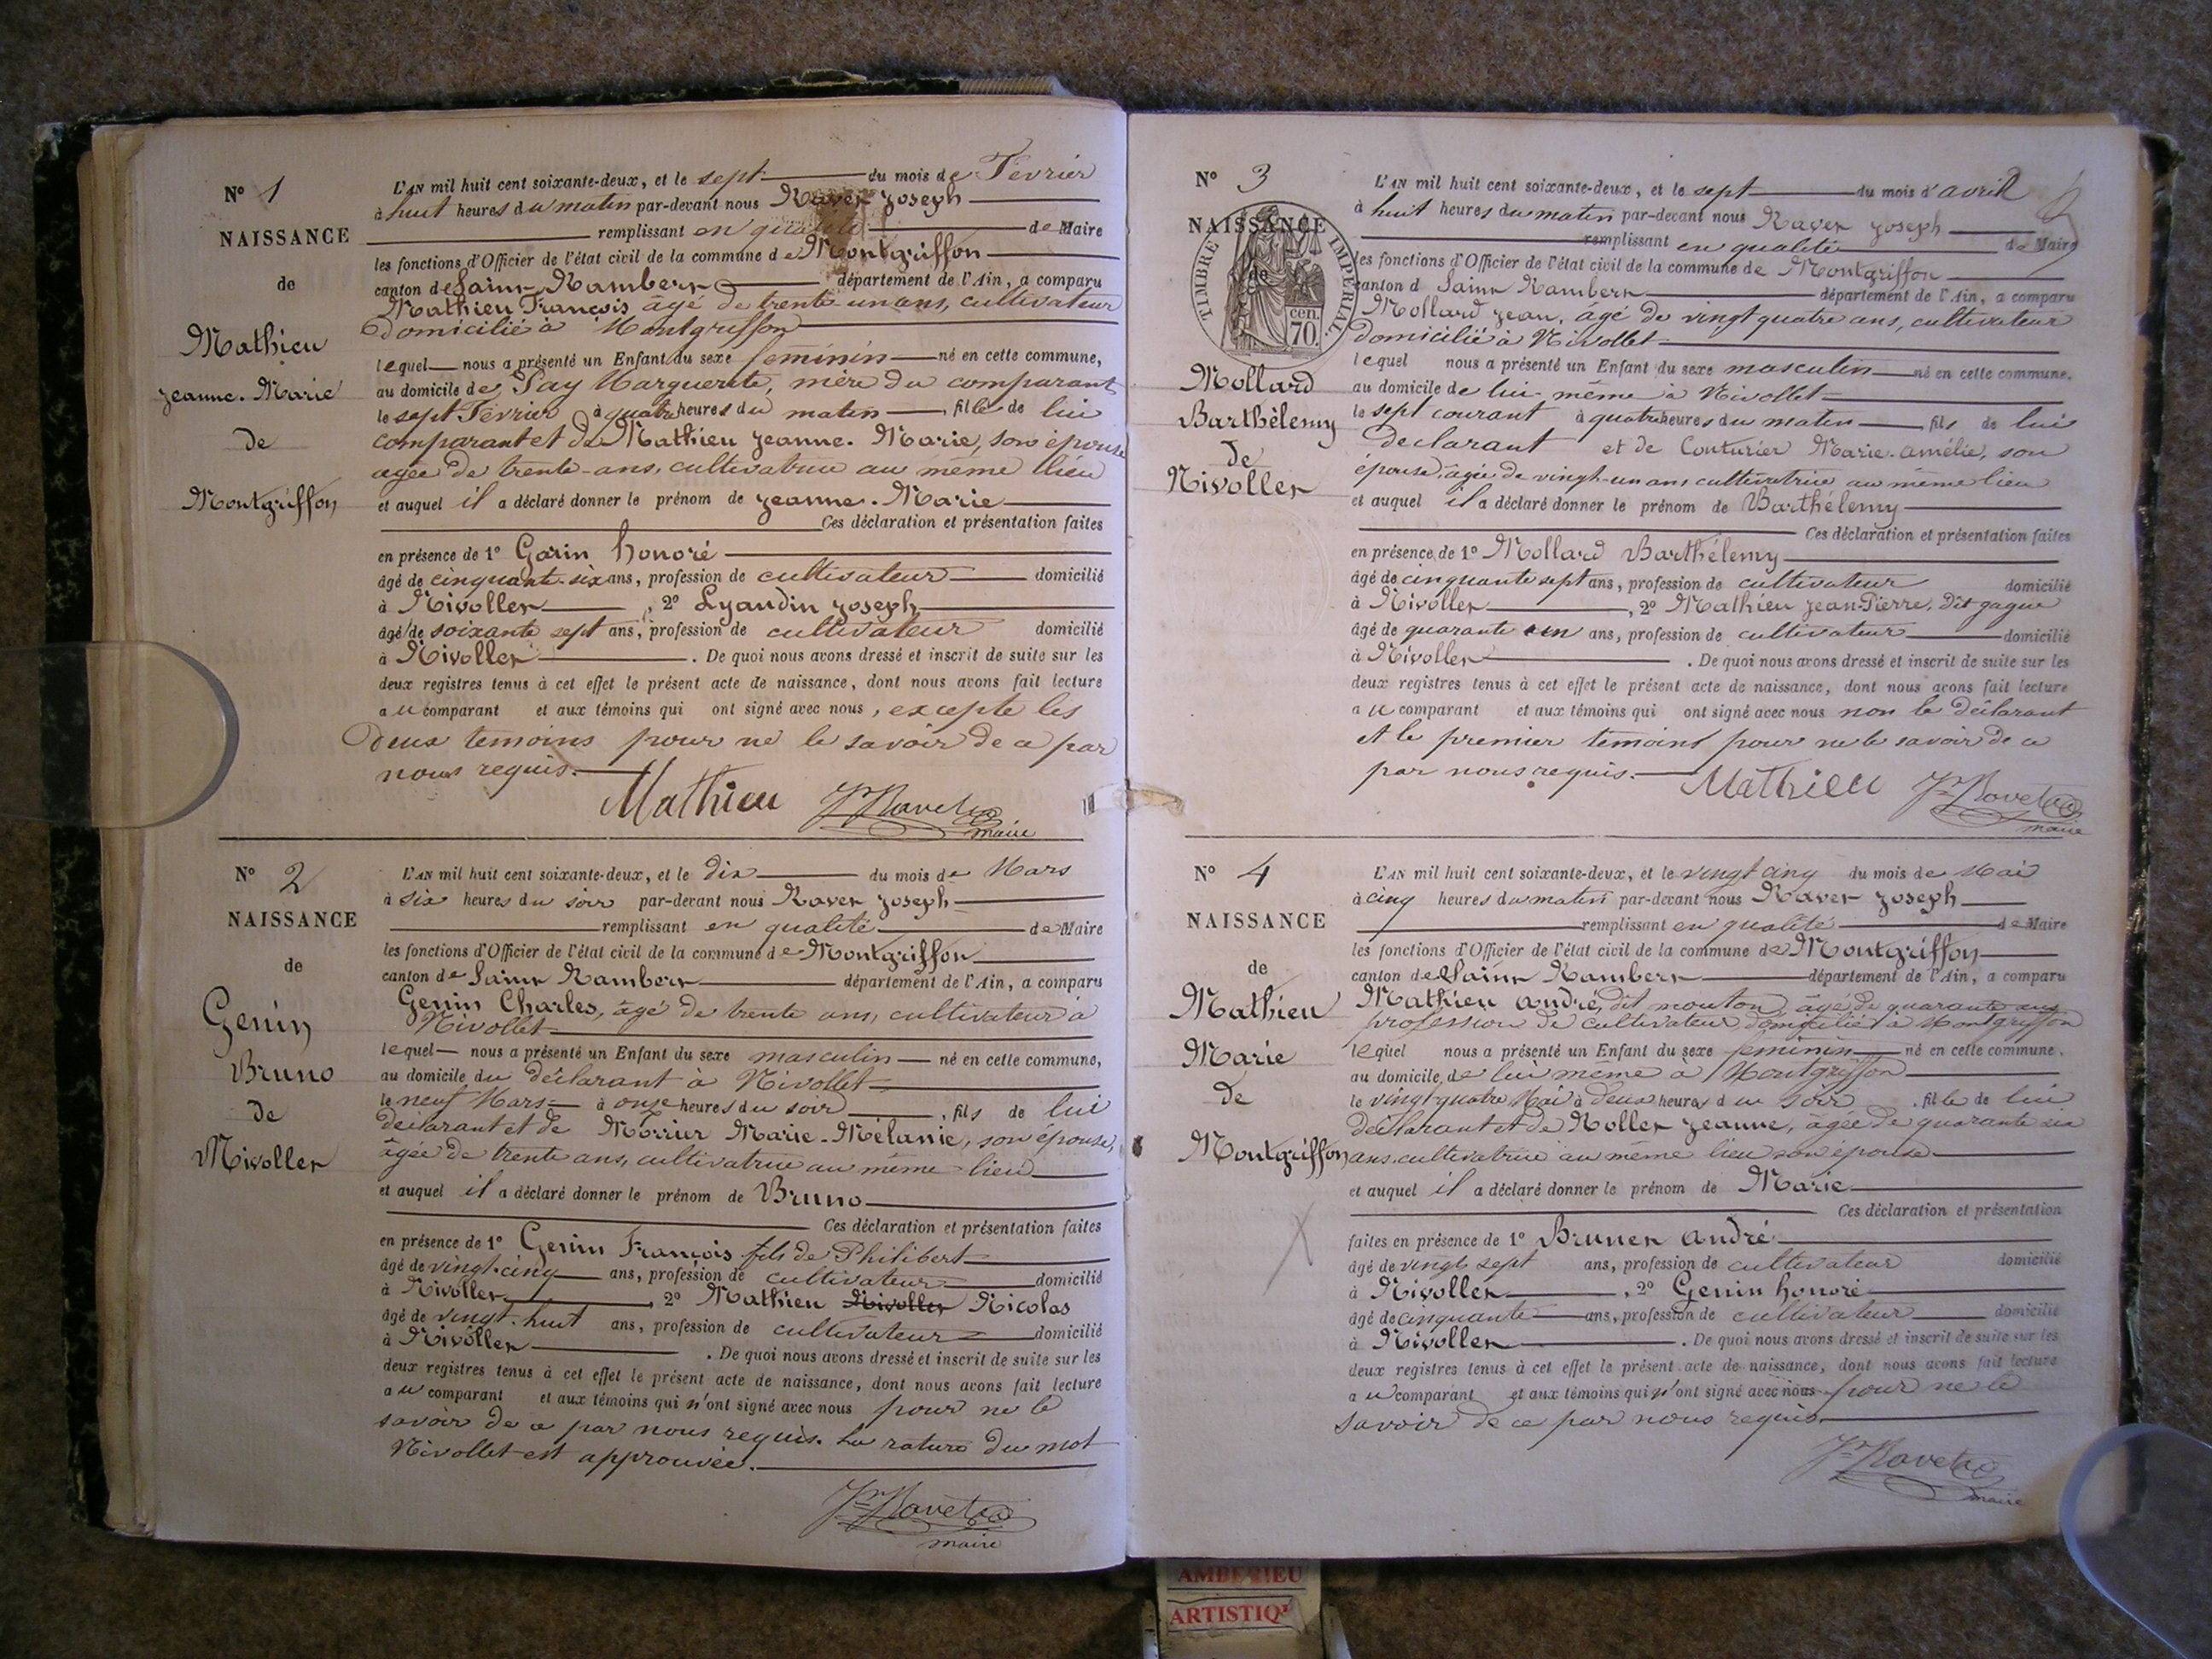 N° 1
NAISSANCE
de
Mathieu
Jeanne-Marie
de
Montgriffon
L'AN mil huit cent soixante-deux, et le sept du mois de Février
à huit heures du matin par-devant nous Ravet Joseph
remplissant en qualité de Maire
les fonctions d'Officier de l'état civil de la commune de Montgriffon
canton de Saint Rambert département de l'Ain, a comparu
Mathieu François âgé de trente un ans, cultivateur
domicilié à Montgriffon
lequel nous a présenté un Enfant du sexe féminin né en cette commune,
au domicile de Pay Marguerite, mère du comparant
le sept Février à quatre heures du matin fille de lui
comparant et de Mathieu Jeanne-Marie, son épouse
agée de trente-ans, cultivatrice au même lieu
et auquel il a déclaré donner le prénom de Jeanne-Marie
Ces déclaration et présentation faites
en présence de 1° Gorin honoré
âgé de cinquante-six ans, profession de cultivateur domicilié
à Nivollet, 2° Lyaudin Joseph
âgé de soixante sept ans, profession de cultivateur domicilié
à Nivollet. De quoi nous avons dressé et inscrit de suite sur les
deux registres tenus à cet effet le présent acte de naissance, dont nous avons fait lecture
au comparant et aux témoins qui ont signé avec nous, excepté les
deux témoins pour ne le savoir de ce par
nous requis.
Mathieu Jh Ravet
maire
N° 2
NAISSANCE
de
Genin
Bruno
de
Nivollet
L'AN mil huit cent soixante-deux, et le dix du mois de Mars
à six heures du soir par-devant nous Ravet Joseph
remplissant en qualité de Maire
les fonctions d'Officier de l'état civil de la commune de Montgriffon
canton de Saint Rambert département de l'Ain, a comparu
Genin Charles, âgé de trente ans, cultivateur à
Nivollet
lequel nous a présenté un Enfant du sexe masculin né en cette commune,
au domicile du déclarant à Nivollet
le neuf Mars à onze heures du soir, fils de lui
déclarant et de Morrier Marie-Mélanie, son épouse,
âgée de trente ans, cultivatrice au même lieu
et auquel il a déclaré donner le prénom de Bruno
Ces déclaration et présentation faites
en présence de 1° Genin François fils de Philibert
âgé de vingt-cinq ans, profession de cultivateur domicilié
à Nivollet, 2° Mathieu Nivollet Nicolas
âgé de vingt-huit ans, profession de cultivateur domicilié
à Nivollet. De quoi nous avons dressé et inscrit de suite sur les
deux registres tenus à cet effet le présent acte de naissance, dont nous avons fait lecture
au comparant et aux témoins qui n'ont signé avec nous pour ne le
savoir de ce par nous requis. La rature du mot
Nivollet est approuvée.
Jh Ravet
maire
N° 3
NAISSANCE
de
TIMBRE IMPÉRIAL
70 cen.
Mollard
Barthélemy
de
Nivollet
L'AN mil huit cent soixante-deux, et le sept du mois d'avril
à huit heures du matin par-devant nous Ravet Joseph
remplissant en qualité de Maire
les fonctions d'Officier de l'état civil de la commune de Montgriffon
canton d Saint Rambert département de l'Ain, a comparu
Mollard Jean, agé de vingt quatre ans, cultivateur
domicilié à Nivollet
lequel nous a présenté un Enfant du sexe masculin né en cette commune.
au domicile de lui-même à Nivollet
le sept courant à quatre heures du matin, fils de lui
déclarant et de Couturier Marie-amélie, son
épouse, âgée de vingt-un ans cultivatrice au même lieu
et auquel il a déclaré donner le prénom de Barthélemy
Ces déclaration et présentation faites
en présence de 1° Mollard Barthélemy
âgé de cinquante sept ans, profession de cultivateur domicilié
à Nivollet, 2° Mathieu Jean-Pierre, dit gagne
âgé de quarante un ans, profession de cultivateur domicilié
à Nivollet. De quoi nous avons dressé et inscrit de suite sur les
deux registres tenus à cet effet le présent acte de naissance, dont nous avons fait lecture
au comparant et aux témoins qui ont signé avec nous non le déclarant
et le premier témoins pour ne le savoir de ce
par nous requis.
Mathieu Jh Ravet
maire
N° 4
NAISSANCE
de
Mathieu
Marie
de
Montgriffon
L'AN mil huit cent soixante-deux, et le vingt cinq du mois de Mai
à cinq heures du matin par-devant nous Ravet Joseph
remplissant en qualité de Maire
les fonctions d'Officier de l'état civil de la commune de Montgriffon
canton de Saint Rambert département de l'Ain, a comparu
Mathieu andré, dit mouton, âgé de quarante ans
profession de cultivateur domicilié à Montgriffon
lequel nous a présenté un Enfant du sexe féminin né en cette commune.
au domicile de lui même à Montgriffon
le vingt-quatre Mai à deux heures du soir, fille de lui
déclarant et de Rollet Jeanne, âgée de quarante six
ans cultivatrice au même lieu son épouse
et auquel il a déclaré donner le prénom de Marie
Ces déclaration et présentation
faites en présence de 1° Brunet andré
âgé de vingt sept ans, profession de cultivateur domicilié
à Nivollet, 2° Genin honoré
âgé de cinquante ans, profession de cultivateur domicilié
à Nivollet. De quoi nous avons dressé et inscrit de suite sur les
deux registres tenus à cet effet le présent acte de naissance, dont nous avons fait lecture
au comparant et aux témoins qui n'ont signé avec nous pour ne le
savoir de ce par nous requis.
Jh Ravet
maire
AMBERIEU
ARTISTIQ